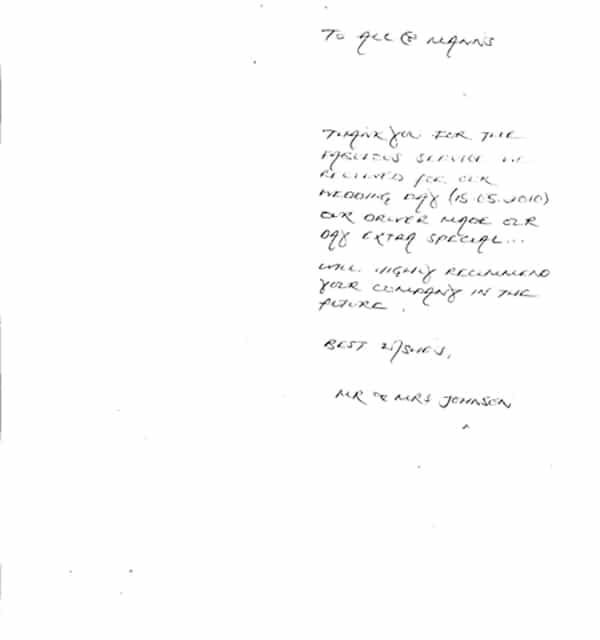 TO ALL @ MANNS
THANK YOU FOR THE
FABULOUS SERVICE WE
RECEIVED FOR OUR
WEDDING DAY (15.05.2010)
OUR DRIVER MADE OUR
DAY EXTRA SPECIAL...
WILL HIGHLY RECOMMEND
YOUR COMPANY IN THE
FUTURE.
BEST WISHES,
MR & MRS JOHNSON